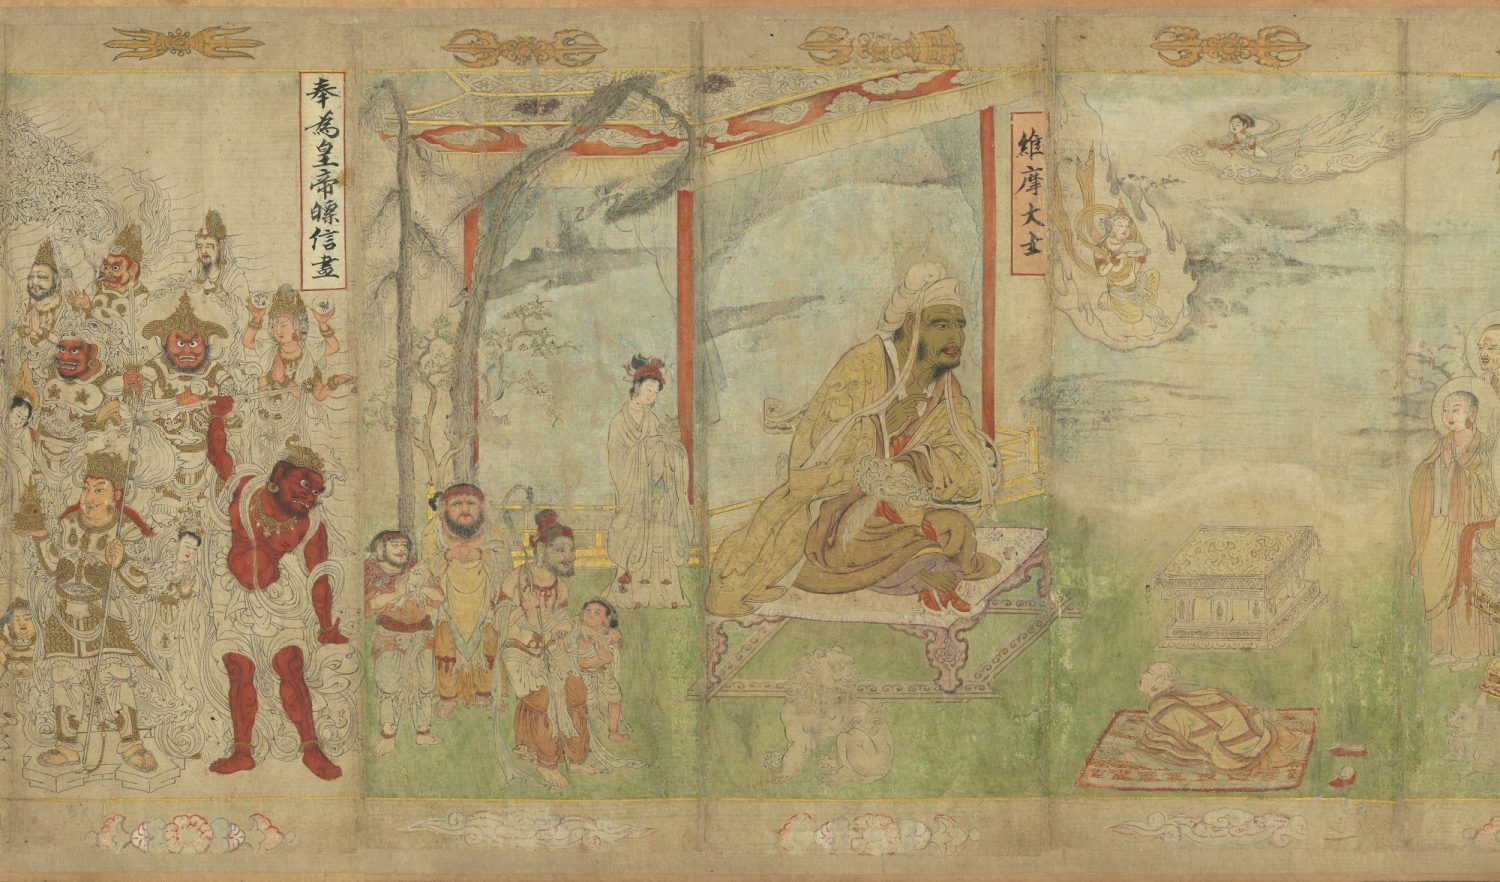 維摩大士
奉為皇帝瞟信畫